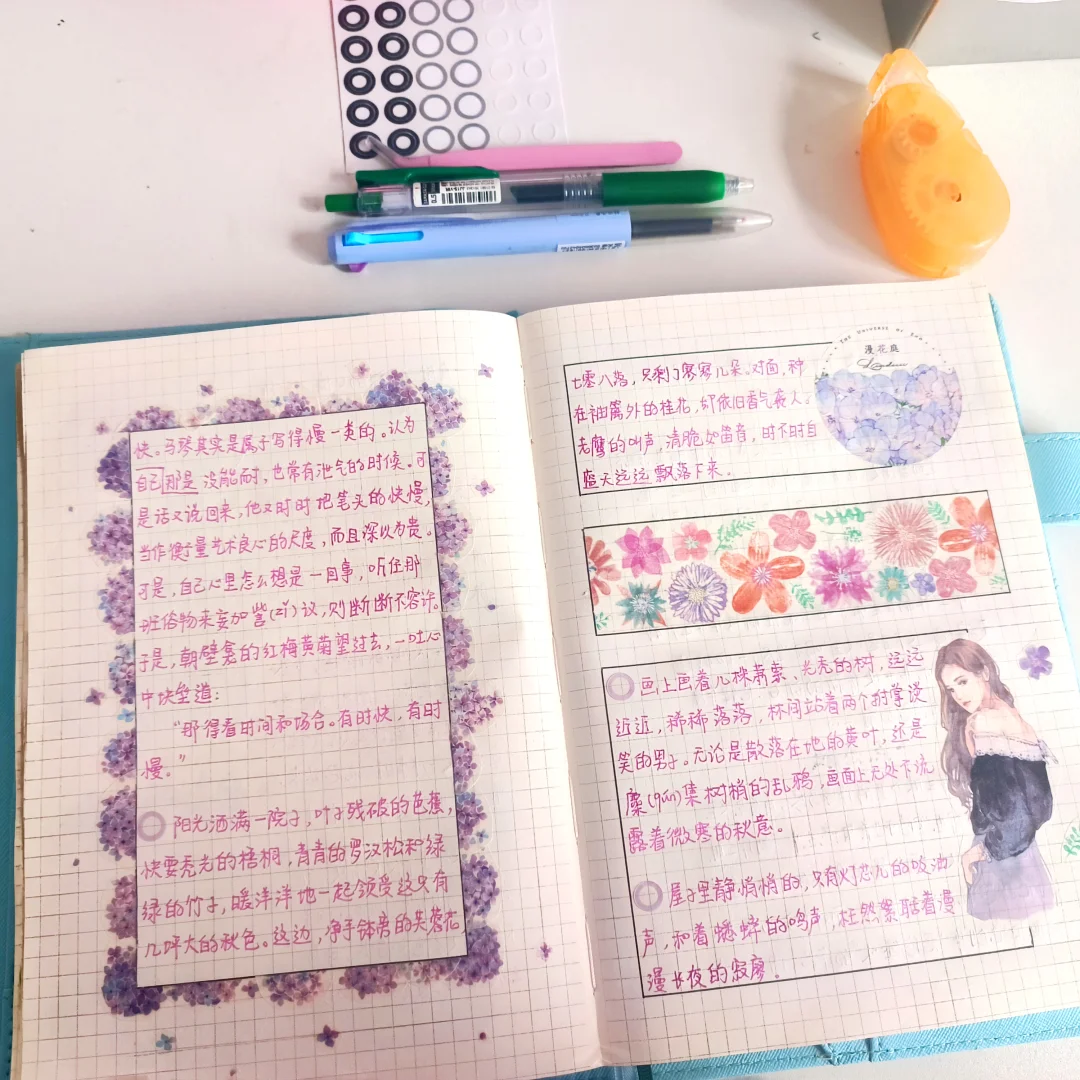 快。马琴其实是属于写得慢一类的。认为
自己那是没能耐，也常有泄气的时候。可
是话又说回来，他又时时把笔头的快慢，
当作衡量艺术良心的尺度，而且深以为贵。
可是，自己心里怎么想是一回事，听任那
班俗物来妄加訾(zǐ)议，则断断不容许。
于是，朝壁龛的红梅黄菊望过去，一吐心
中块垒道：
“那得看时间和场合。有时快，有时
慢。”
阳光洒满一院子，叶子残破的芭蕉，
快要秃光的梧桐，青青的罗汉松和绿
绿的竹子，暖洋洋地一起领受这只有
几坪大的秋色。这边，净手钵旁的芙蓉花，
七零八落，只剩了寥寥几朵。对面，种
在袖篱外的桂花，却依旧香气袭人。
老鹰的叫声，清脆如笛音，时不时自
蓝天远远飘落下来。
漫花庭
画上画着几株萧索、光秃的树，远远
近近，稀稀落落，林间站着两个拊掌谈
笑的男子。无论是散落在地的黄叶，还是
麇(qún)集树梢的乱鸦，画面上无处不流
露着微寒的秋意。
屋子里静悄悄的，只有灯芯儿的吸油
声，和着蟋蟀的鸣声，枉然絮聒着漫
漫长夜的寂寥。